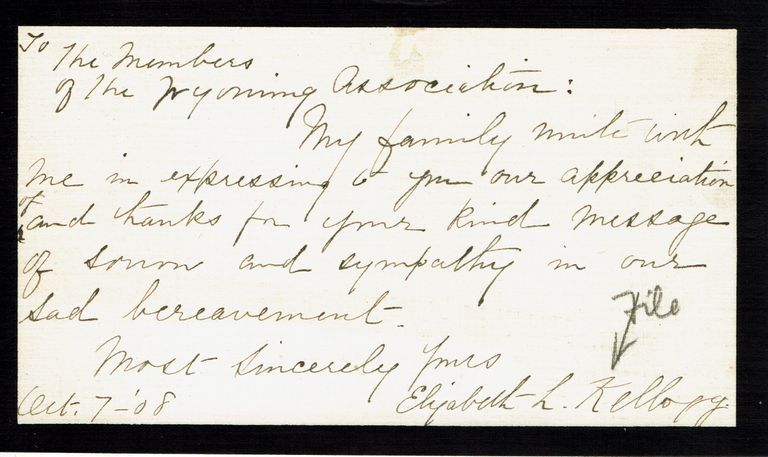 To The Members
of The Wyoming Association:
My family unite with
me in expressing to you our appreciation
of
and thanks for your kind message
of sorrow and sympathy in our
sad bereavement.
File
Most Sincerely Yours
Oct. 7-'08 Elizabeth L. Kellogg.